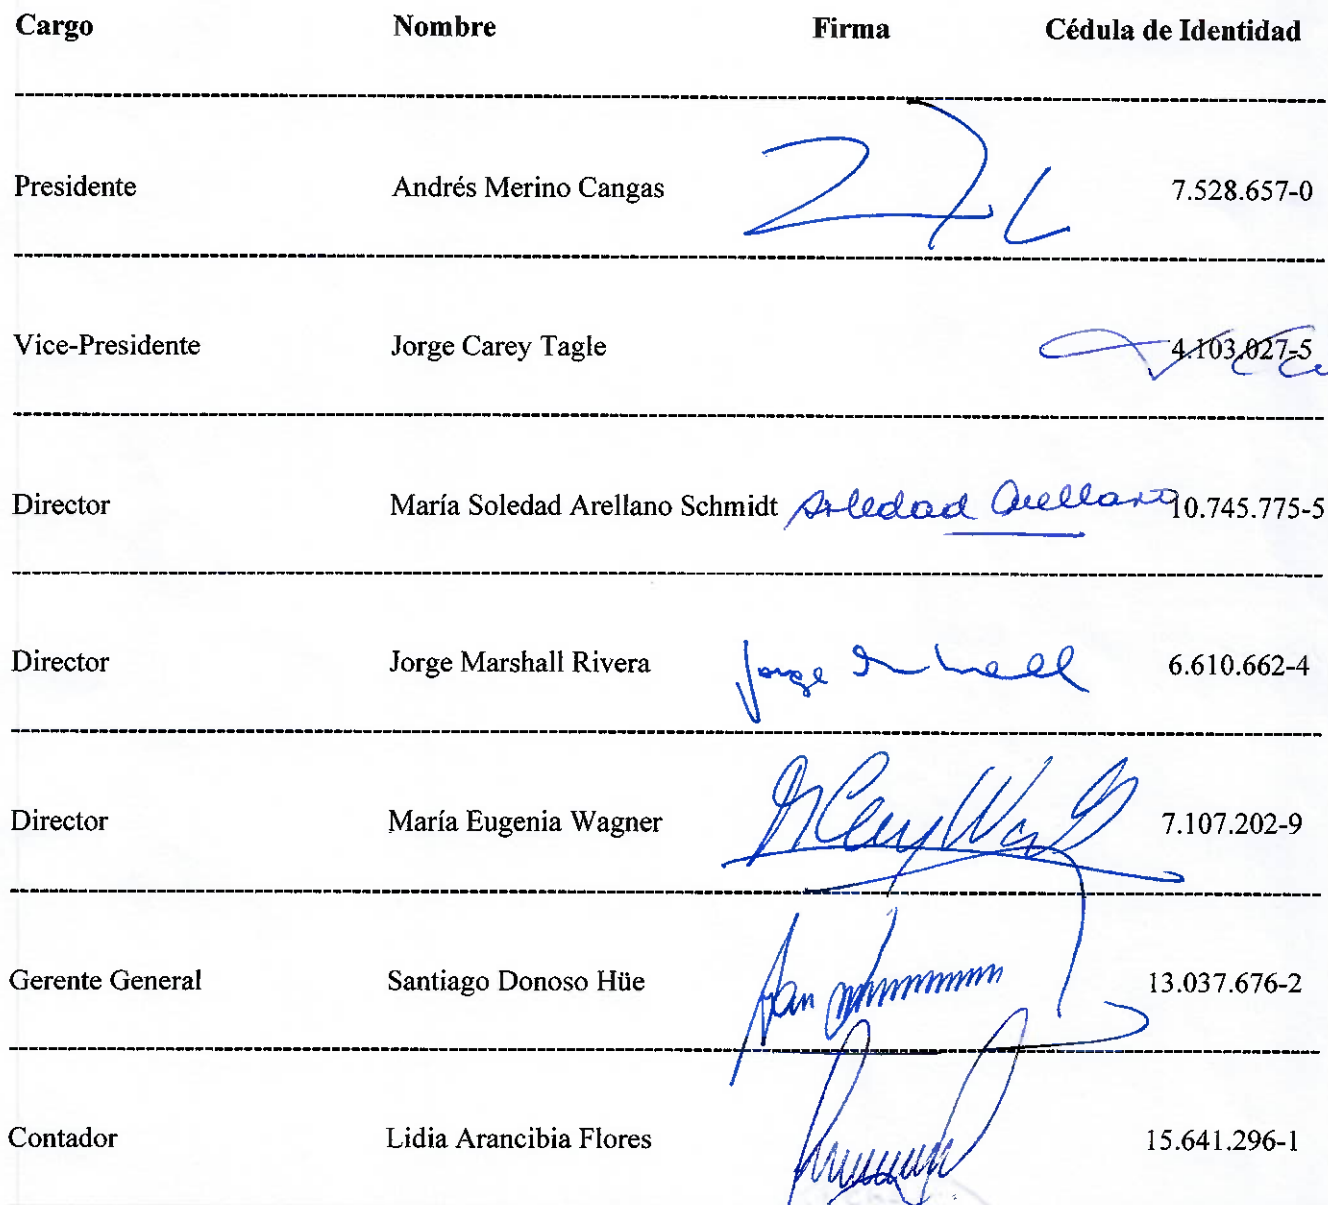 Cargo Nombre Firma Cédula de Identidad
Presidente Andrés Merino Cangas 7.528.657-0
Vice-Presidente Jorge Carey Tagle 4.103.027-5
Director María Soledad Arellano Schmidt Soledad Arellano 10.745.775-5
Director Jorge Marshall Rivera Jorge Marshall 6.610.662-4
Director María Eugenia Wagner 7.107.202-9
Gerente General Santiago Donoso Hüe 13.037.676-2
Contador Lidia Arancibia Flores 15.641.296-1